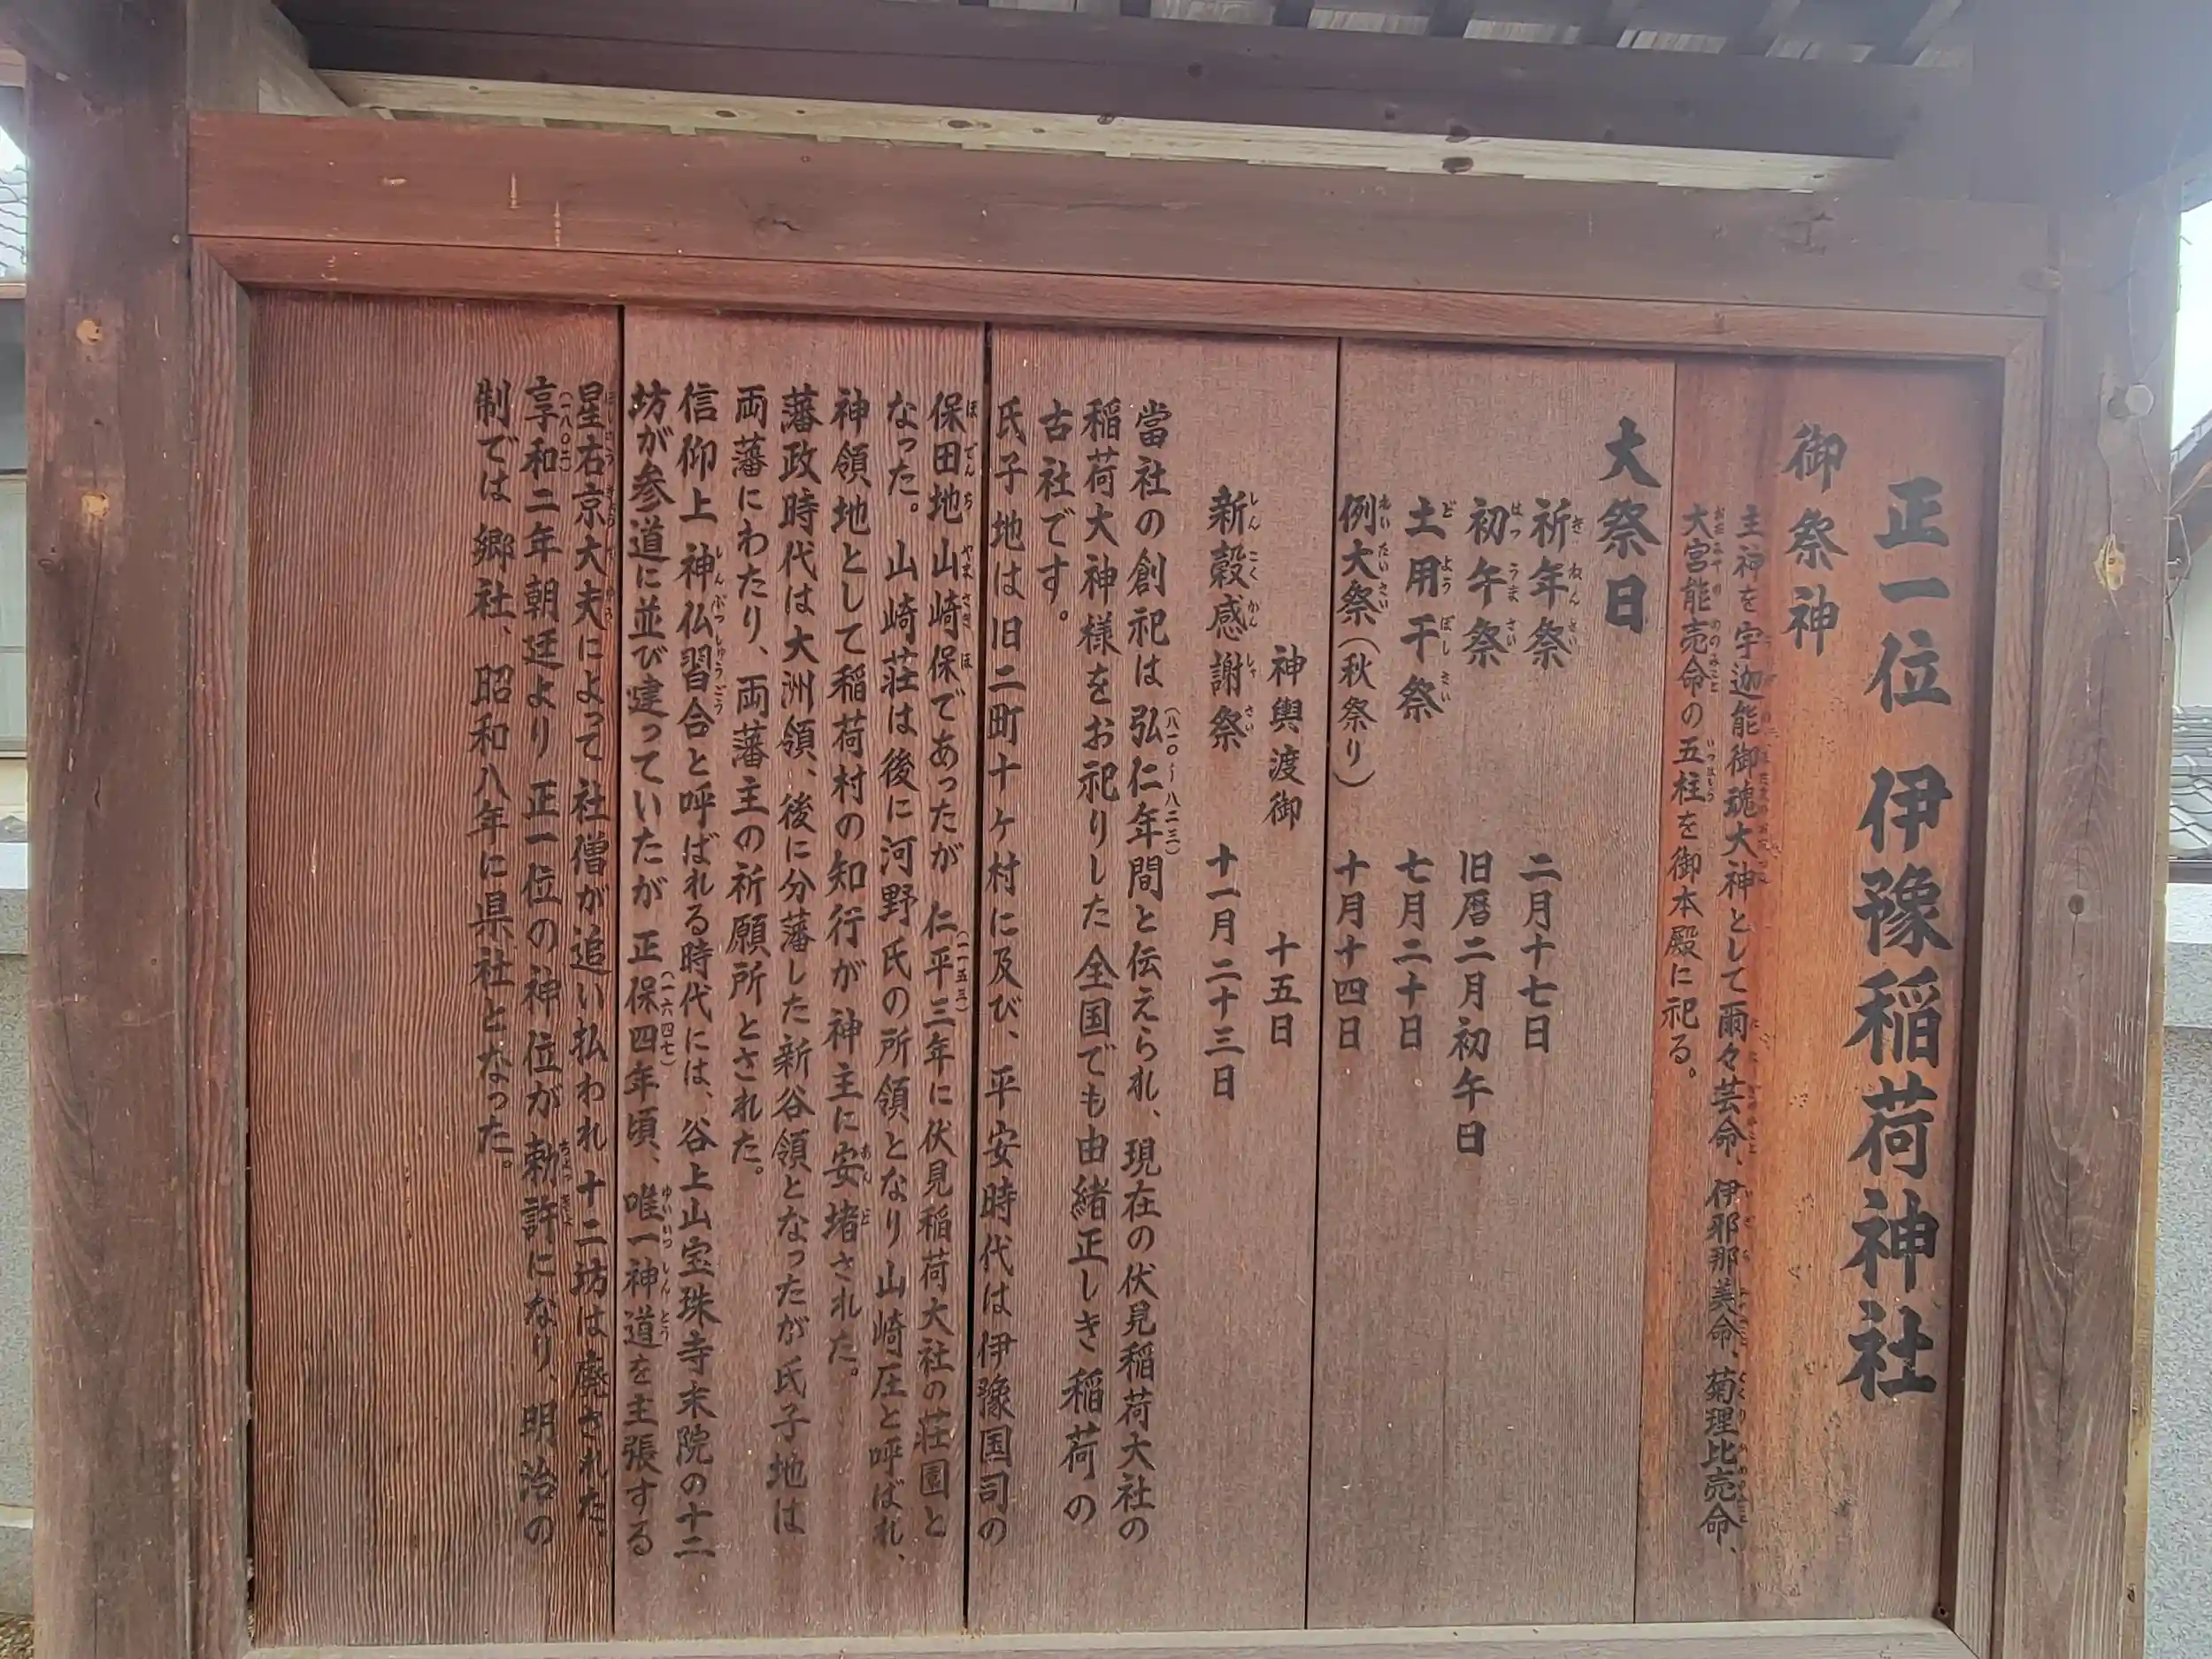 正一位 伊豫稲荷神社
御祭神
主神を宇迦能御魂大神として爾々芸命、伊邪那美命、菊理比売命、
大宮能売命の五柱を御本殿に祀る。
大祭日
祈年祭 二月十七日
初午祭 旧暦二月初午日
土用干祭 七月二十日
例大祭(秋祭り) 十月十四日
神輿渡御 十五日
新穀感謝祭 十一月二十三日
當社の創祀は弘仁年間(八一〇〜八二三)と伝えられ、現在の伏見稲荷大社の
稲荷大神様をお祀りした全国でも由緒正しき稲荷の
古社です。
氏子地は旧二町十ヶ村に及び、平安時代は伊豫国司の
保田地山崎保であったが 仁平三年(一一五三)に伏見稲荷大社の荘園と
なった。山崎荘は後に河野氏の所領となり山崎庄と呼ばれ、
神領地として稲荷村の知行が神主に安堵された。
藩政時代は大洲領、後に分藩した新谷領となったが氏子地は
両藩にわたり、両藩主の祈願所とされた。
信仰上 神仏習合と呼ばれる時代には、谷上山宝珠寺末院の十二
坊が参道に並び建っていたが 正保四年(一六四七)頃、唯一神道を主張する
星右京大夫によって 社僧が追い払われ十二坊は廃された。
享和二年(一八〇二)朝廷より 正一位の神位が勅許になり、明治の
制では郷社、昭和八年に県社となった。